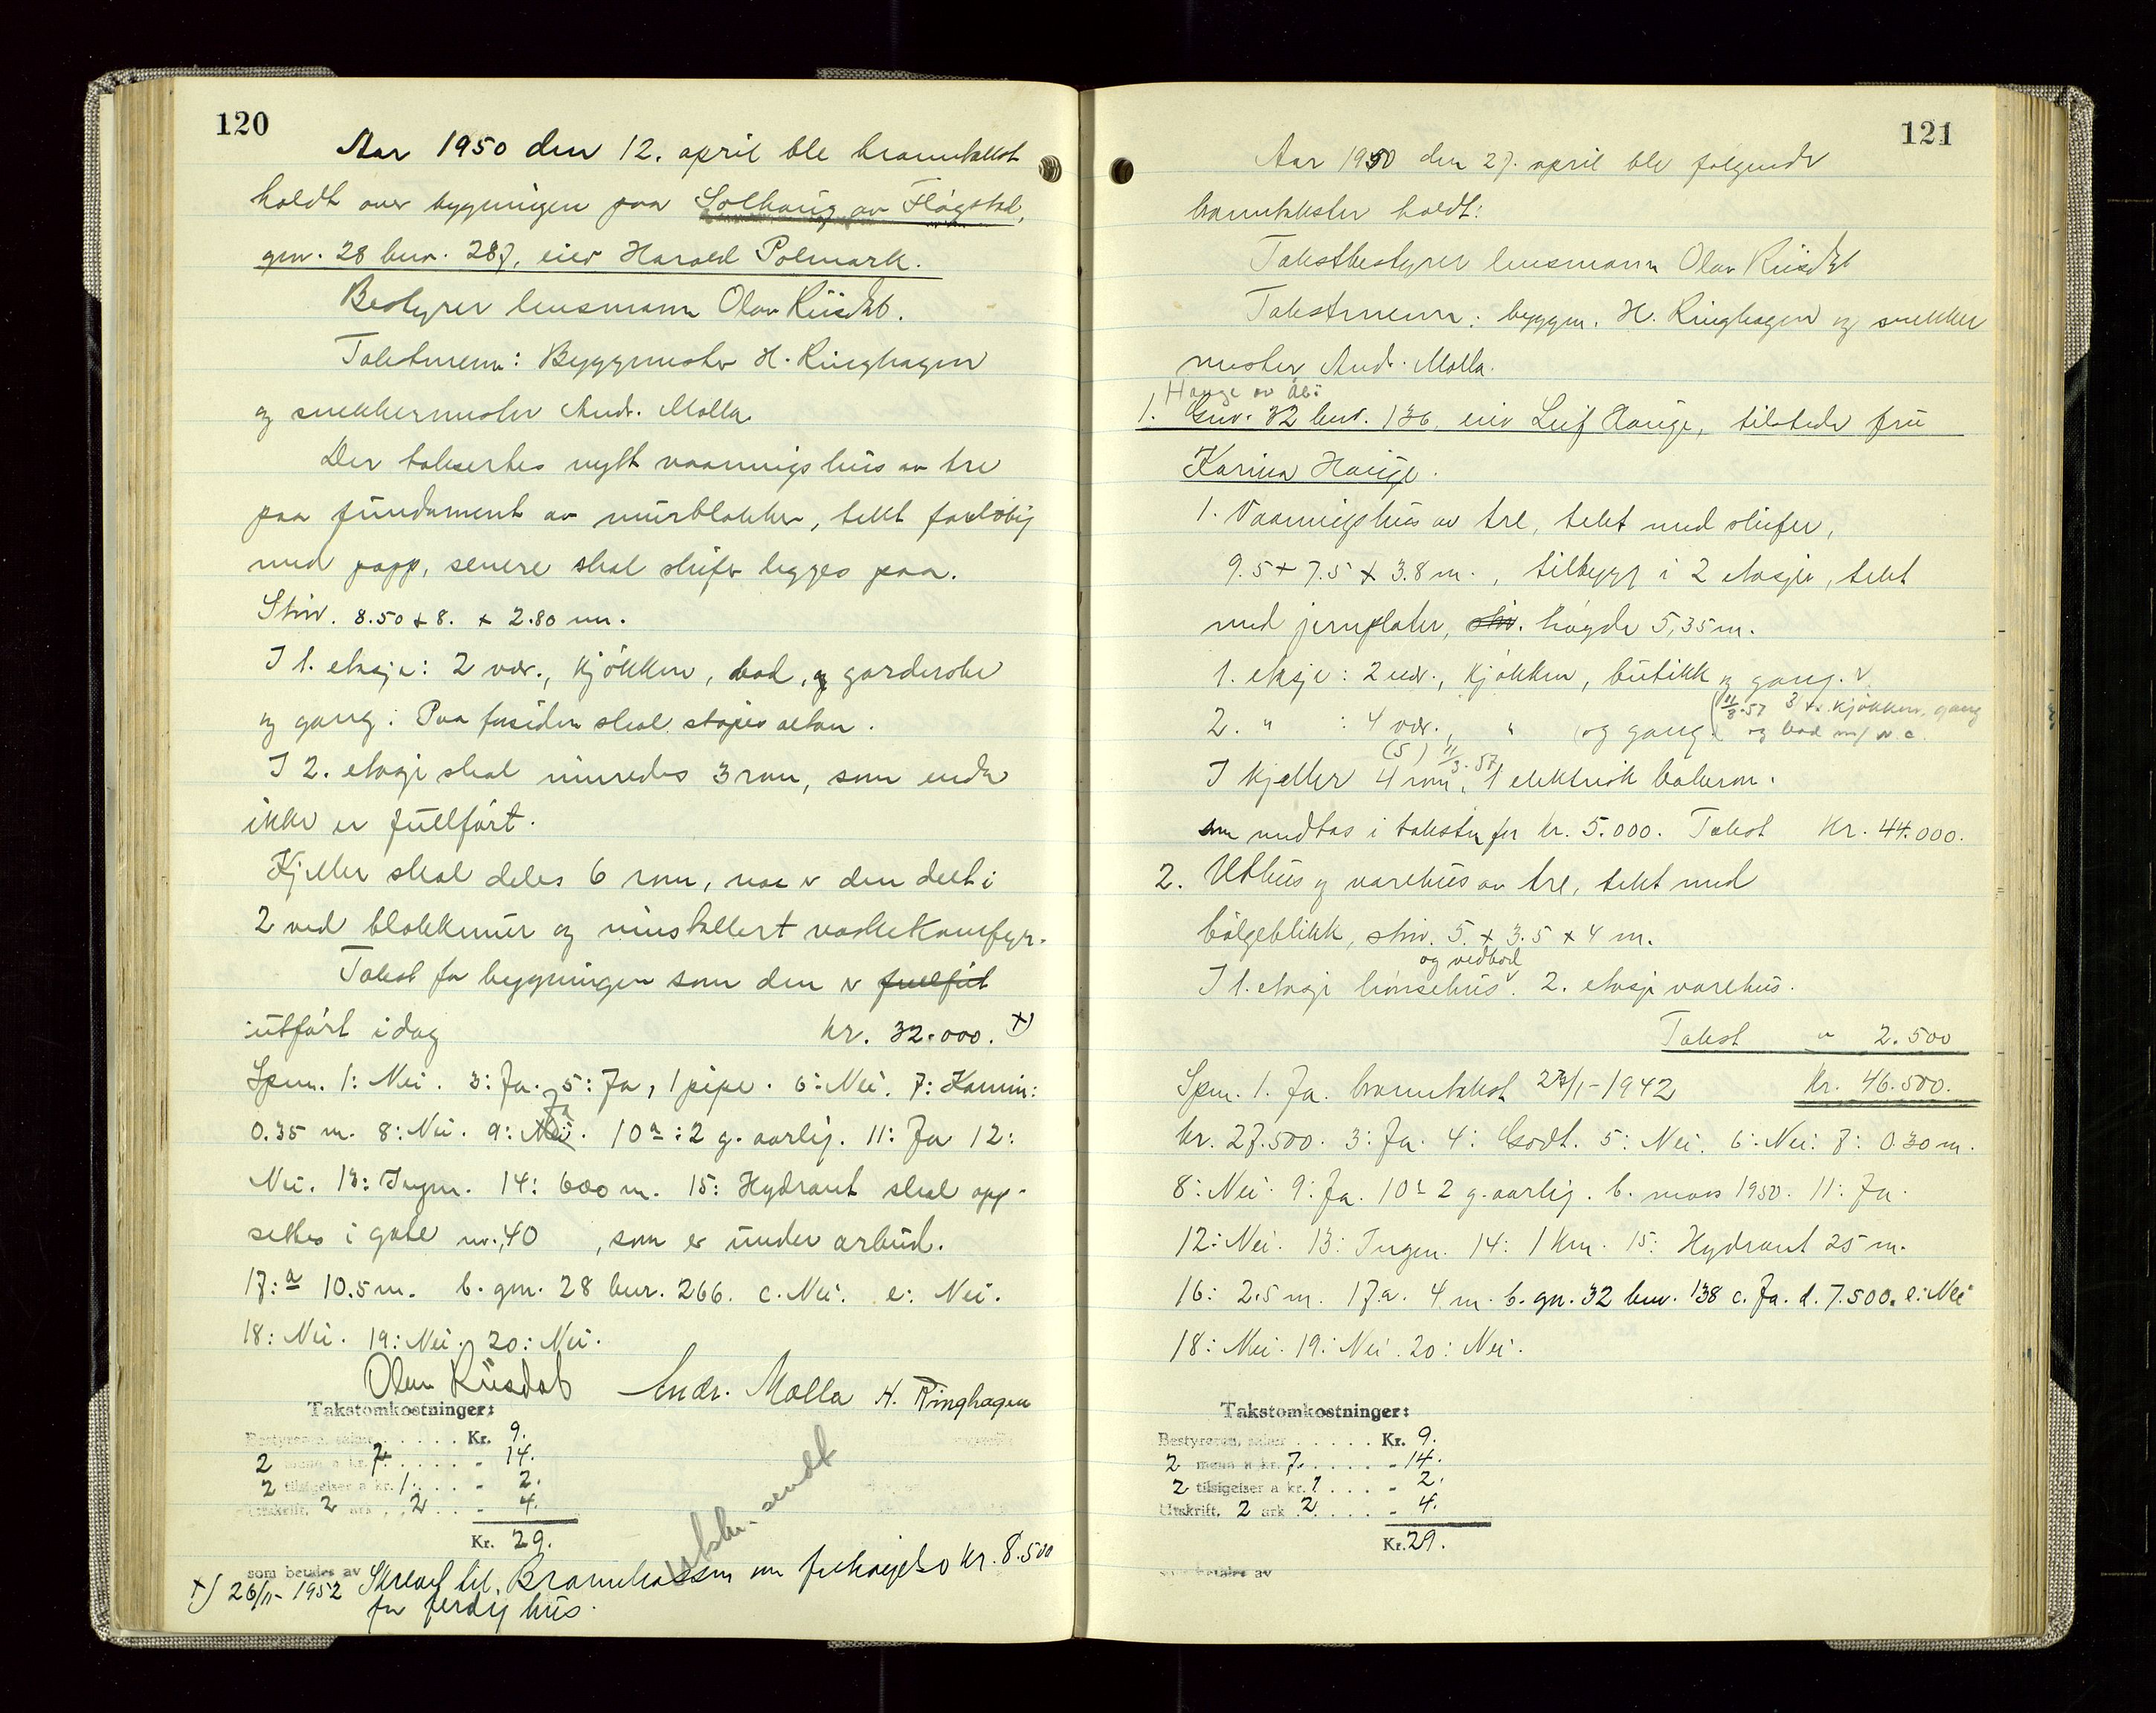 120
Aar 1950 den 12. april ble branntakst
holdt over bygningen paa Solhaug av Fløgstad,
gnr. 28 bnr. 287, eier Harald Polmark.
Bestyrer lensmann Olav Riisdal.
Takstmenn: Byggmester H. Ringhagen
og snekkermester Andr. Molla
Der takseertes nytt vaaningshus av tre
paa fundament av murblokker, tekt foreløbig
med papp, senere skal skifer legges paa.
Stør. 8.50 x 8. x 2.80 m.
I 1. etasje: 2 vær., kjøkken, bad, og garderobe
og gang. Paa fasiden skal støpes altan.
I 2. etasje skal innredes 3 rom, som enda
ikke er fullført.
Kjeller skal deles 6 rom, naa er den delt i
2 ved blokkmur og installert vaskekomfyr.
Takst for bygningen som den er fullført
utført idag kr. 32.000. +)
Spm. 1: Nei. 3: Ja. 5: Ja, 1 pipe. 6: Nei. 7: Kamin:
0.35 m. 8: Nei. 9: Nei Ja. 10a: 2 g. aarlig. 11: Ja 12:
Nei. 13: Ingen. 14: 600 m. 15: Hydrant skal opp-
settes i gate nr. 40 , som er under arbeid.
17: a 10.5 m. b. gnr. 28 bnr. 266. c. Nei. e: Nei.
18: Nei. 19: Nei. 20: Nei.
Olav Riisdal Andr. Molla H. Ringhagen
Takstomkostninger:
Bestyreren, salær . . . . . . Kr. 9.
2 menn a kr. 7. . . . . - 14.
2 tilsigelser a kr. 1. . . . - 2.
Utskrift, 2 ark, 2 . . . - 4.
Kr. 29.
utskr. sendt
som betales av
+) 26/11-1952 Skrevet til Brannkassen om forhøyelse kr. 8.500
for ferdig hus.
121
Aar 1950 den 27. april ble følgende
branntakster holdt:
Takstbestyrer lensmann Olav Riisdal
Takstmenn: byggm. H. Ringhagen og snekker
mester Andr. Molla.
Hauge av
1. Gnr. 32 bnr. 136, eier Leif Hauge, tilstede fru
Karina Hauge.
1. Vaaningshus av tre, tekt med skifer,
9.5 x 7.5 x 3.8 m., tilbygg i 2 etasjer, tekt
med jernplater, stør. høgde 5,35 m.
1. etasje: 2 vær., kjøkken, butikk og gang.
2. " : 4 vær., " (og gang.
(11/3-57 3 vær. kjøkken, gang
og bad m/ w c.
(5) 11/3-57
I kjeller 4 rom, 1 elektrisk bakerom.
som medtas i taksten for kr. 5.000. Takst kr. 44.000.
2. Uthus og varehus av tre, tekt med
bølgeblikk, stør. 5. x 3.5 x 4 m.
og vedbod
I 1. etasje hønsehus. 2. etasje varehus.
Takst " 2.500
Spm. 1. Ja. branntakst 27/1-1942 kr. 46.500.
kr. 27.500. 3: Ja. 4: Godt. 5: Nei. 6: Nei. 7: 0.30 m.
8: Nei. 9: Ja. 10a 2 g. aarlig. b. mars 1950. 11: Ja.
12: Nei. 13: Ingen. 14: 1 km. 15: Hydrant 25 m.
16: 2.5 m. 17a. 4 m. b. gn. 32 bnr. 138 c. Ja. d. 7.500. e: Nei
18: Nei. 19: Nei. 20: Nei.
Takstomkostninger:
Bestyreren, salær . . . . . . Kr. 9.
2 menn a kr. 7. . . . . - 14.
2 tilsigelser a kr. 1 . . . . - 2.
Utskrift, 2 ark 2 . . . . - 4.
Kr. 29.
som betales av